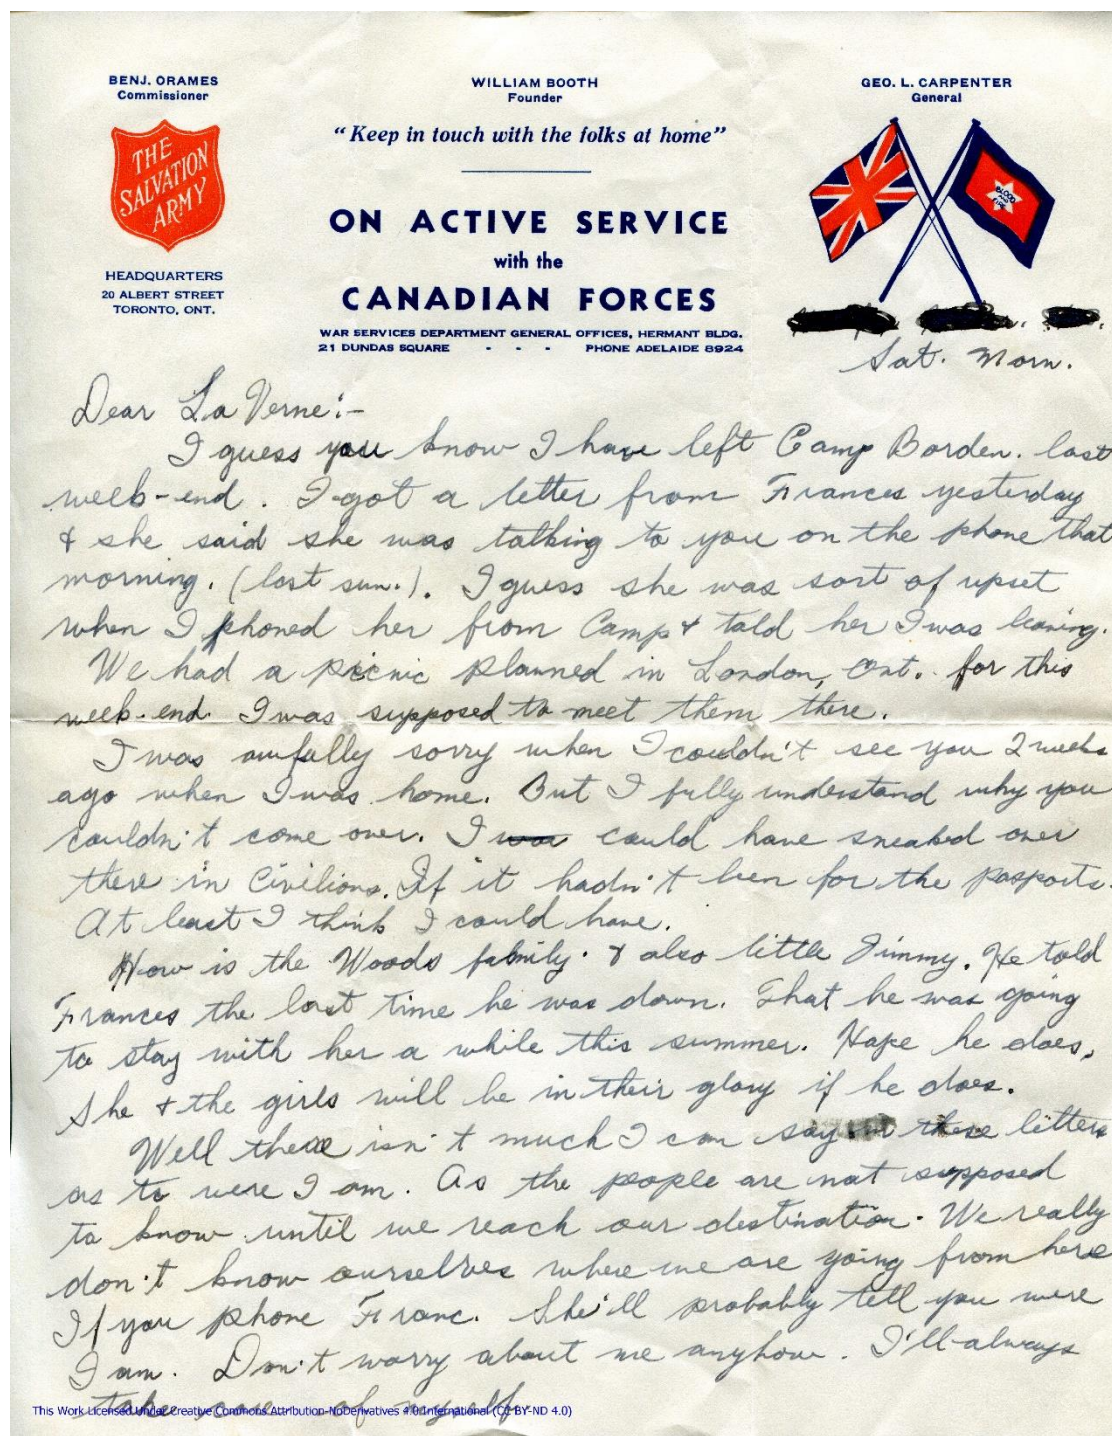 BENJ. ORAMES
Commissioner
WILLIAM BOOTH
Founder
GEO. L. CARPENTER
General
"Keep in touch with the folks at home"
THE
SALVATION
ARMY
BLOOD
AND
FIRE
ON ACTIVE SERVICE
with the
CANADIAN FORCES
HEADQUARTERS
20 ALBERT STREET
TORONTO, ONT.
WAR SERVICES DEPARTMENT GENERAL OFFICES, HERMANT BLDG.
21 DUNDAS SQUARE - - - PHONE ADELAIDE 8924
Sat. Morn.
Dear La Verne:-
I guess you know I have left Camp Borden. last
week-end. I got a letter from Frances yesterday
& she said she was talking to you on the phone that
morning. (last sun.). I guess she was sort of upset
when I phoned her from Camp & told her I was leaving.
We had a picnic planned in London, Ont. for this
week-end. I was supposed to meet them there.
I was awfully sorry when I couldn't see you 2 weeks
ago when I was home. But I fully understand why you
couldn't come over. I was could have sneaked over
there in Civilions. If it hadn't been for the pasports.
At least I think I could have.
How is the Woods family. & also little Jimmy. He told
Frances the last time he was down. That he was going
to stay with her a while this summer. Hope he does,
She & the girls will be in their glory if he does.
Well there isn't much I can say in these letters
as to were I am. As the people are not supposed
to know until we reach our destination. We really
don't know ourselves where we are going from here
If you phone Franc. She'll probably tell you were
I am. Don't worry about me anyhow. I'll always
take care of myself
This Work Licensed Under Creative Commons Attribution-NoDerivatives 4.0 International (CC BY-ND 4.0)